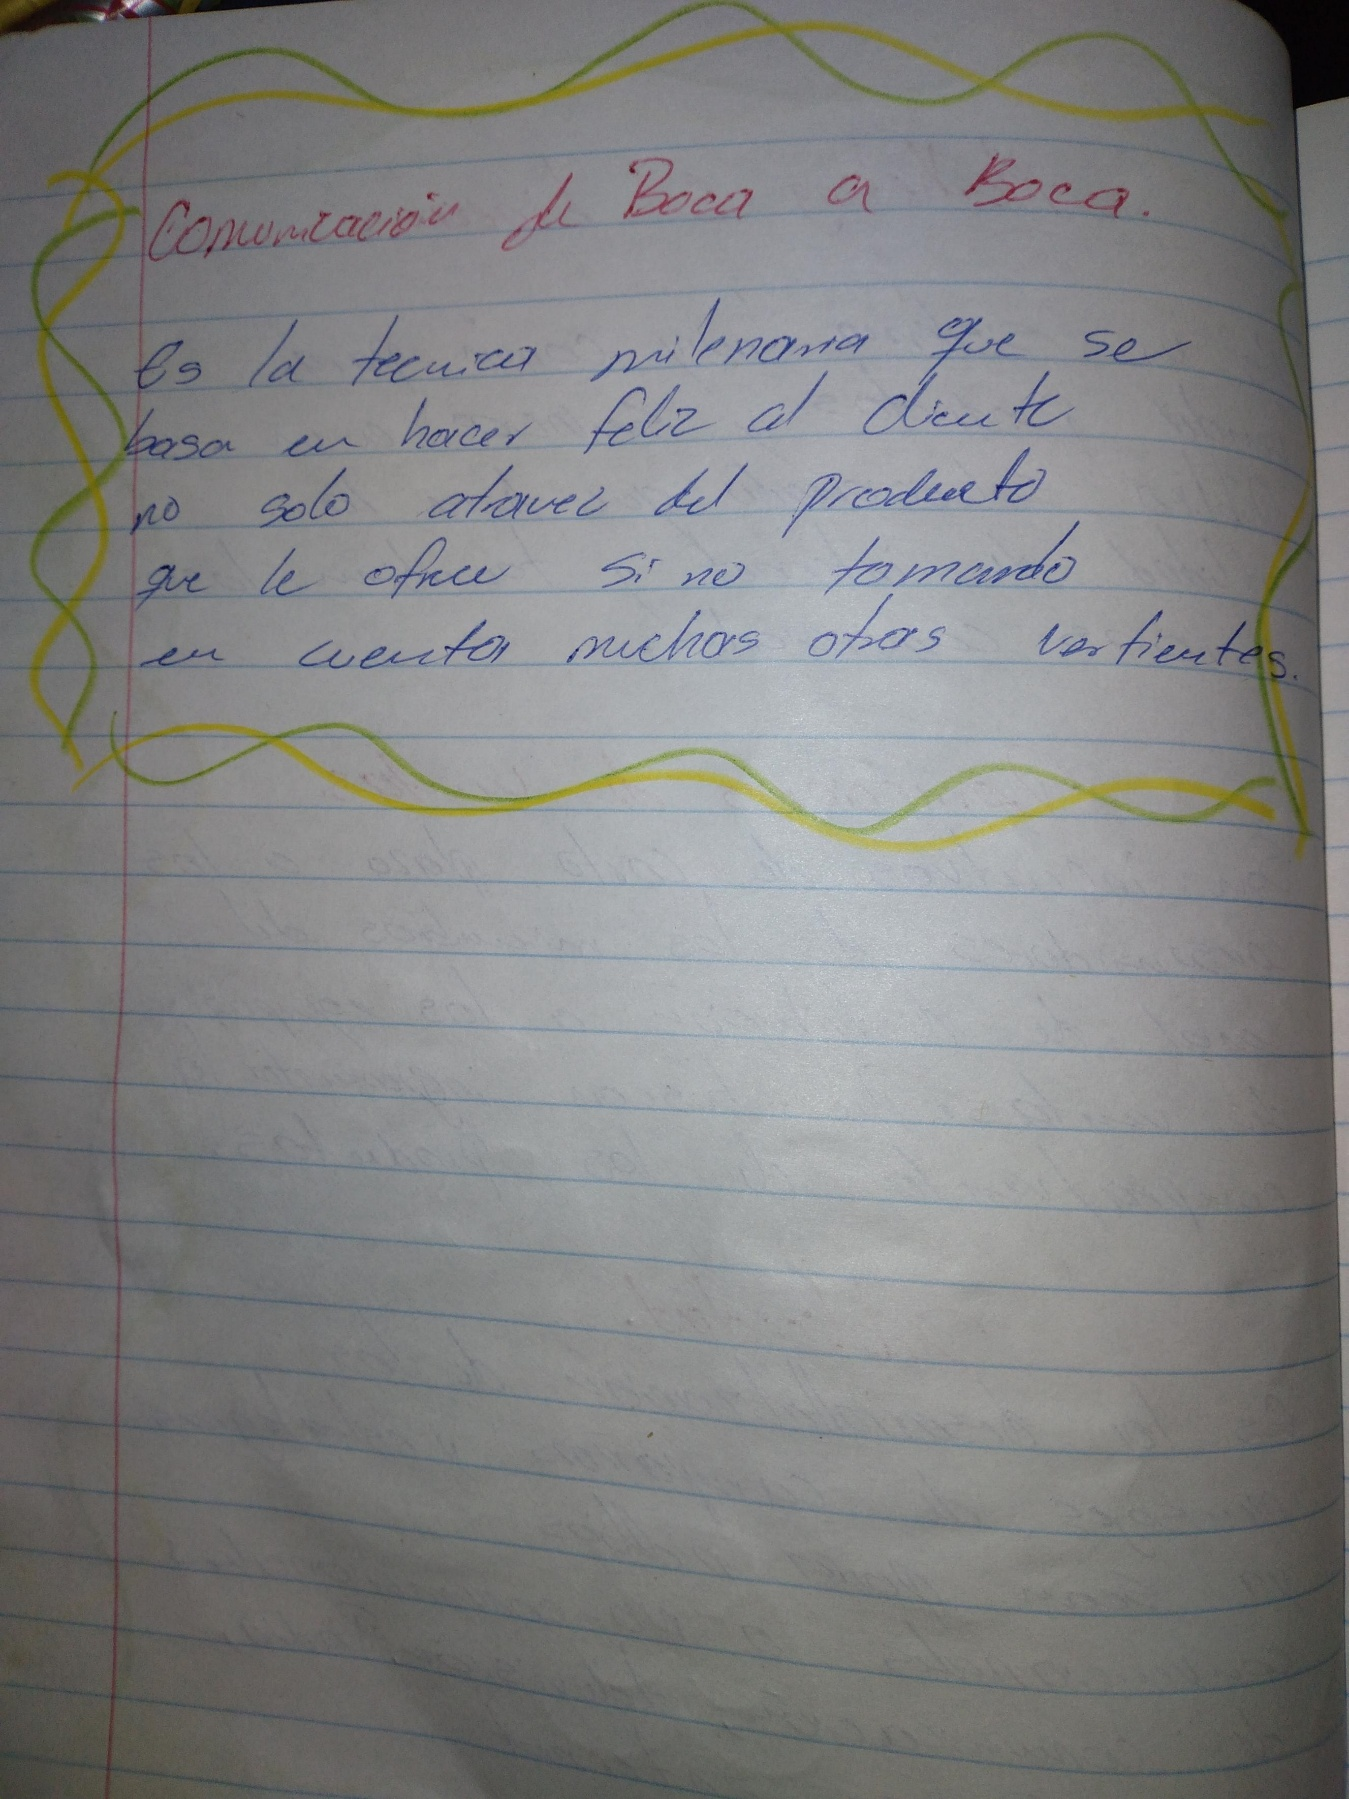 Comunicación de Boca a Boca.
Es la tecnica milenaria que se
basa en hacer feliz al cliente
no solo atravez del producto
que le ofrece si no tomando
en cuenta muchas otras vertientes.